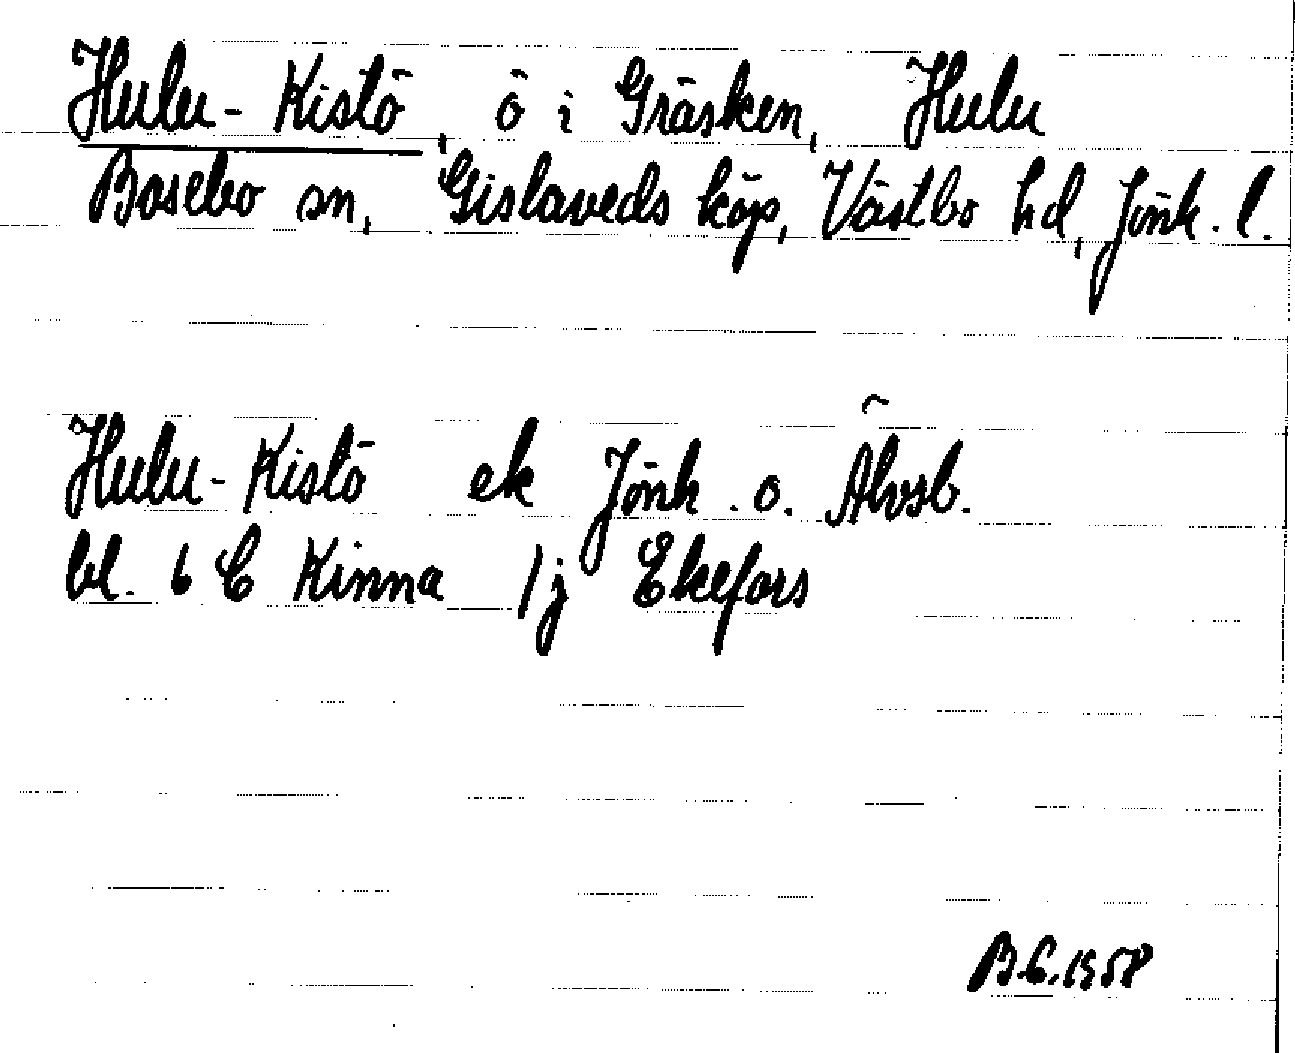 Hulu-Kistö, ö i Gräsken, Hulu
Bosebo sn, Gislaveds köp, Västbo hd, Jönk. l.
Hulu-Kistö ek Jönk. o. Älvsb.
bl. 6 C Kinna 1j Ekefors
B.C. 1958